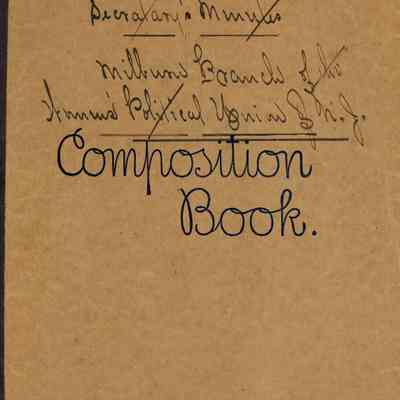 Secretary's Minutes
Milburn Branch of the
Women's Political Union of N.J.
Composition
Book.